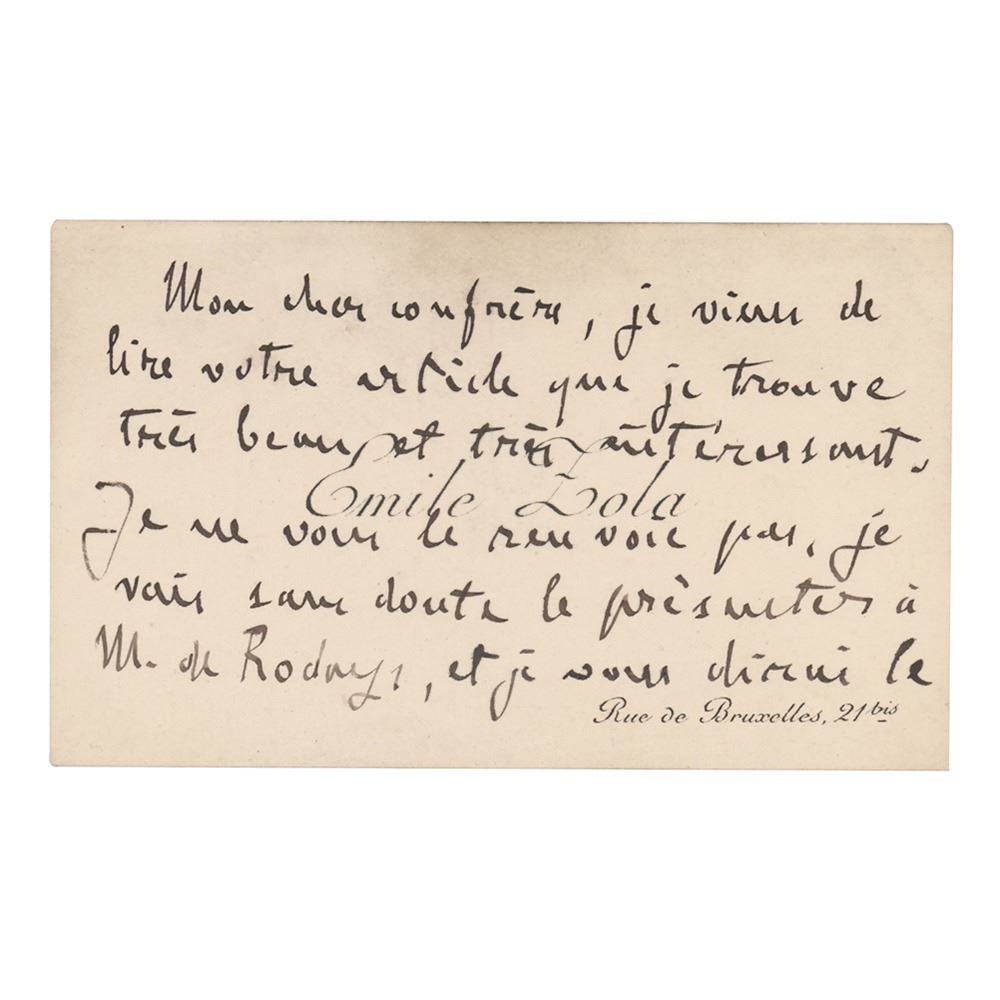 Mon cher confrère, je viens de
lire votre article que je trouve
très beau et très intéressant.
Emile Zola
Je ne vous le renvoie pas, je
vais sans doute le présenter à
M. de Rodays, et je vous dirai le
Rue de Bruxelles, 21 bis